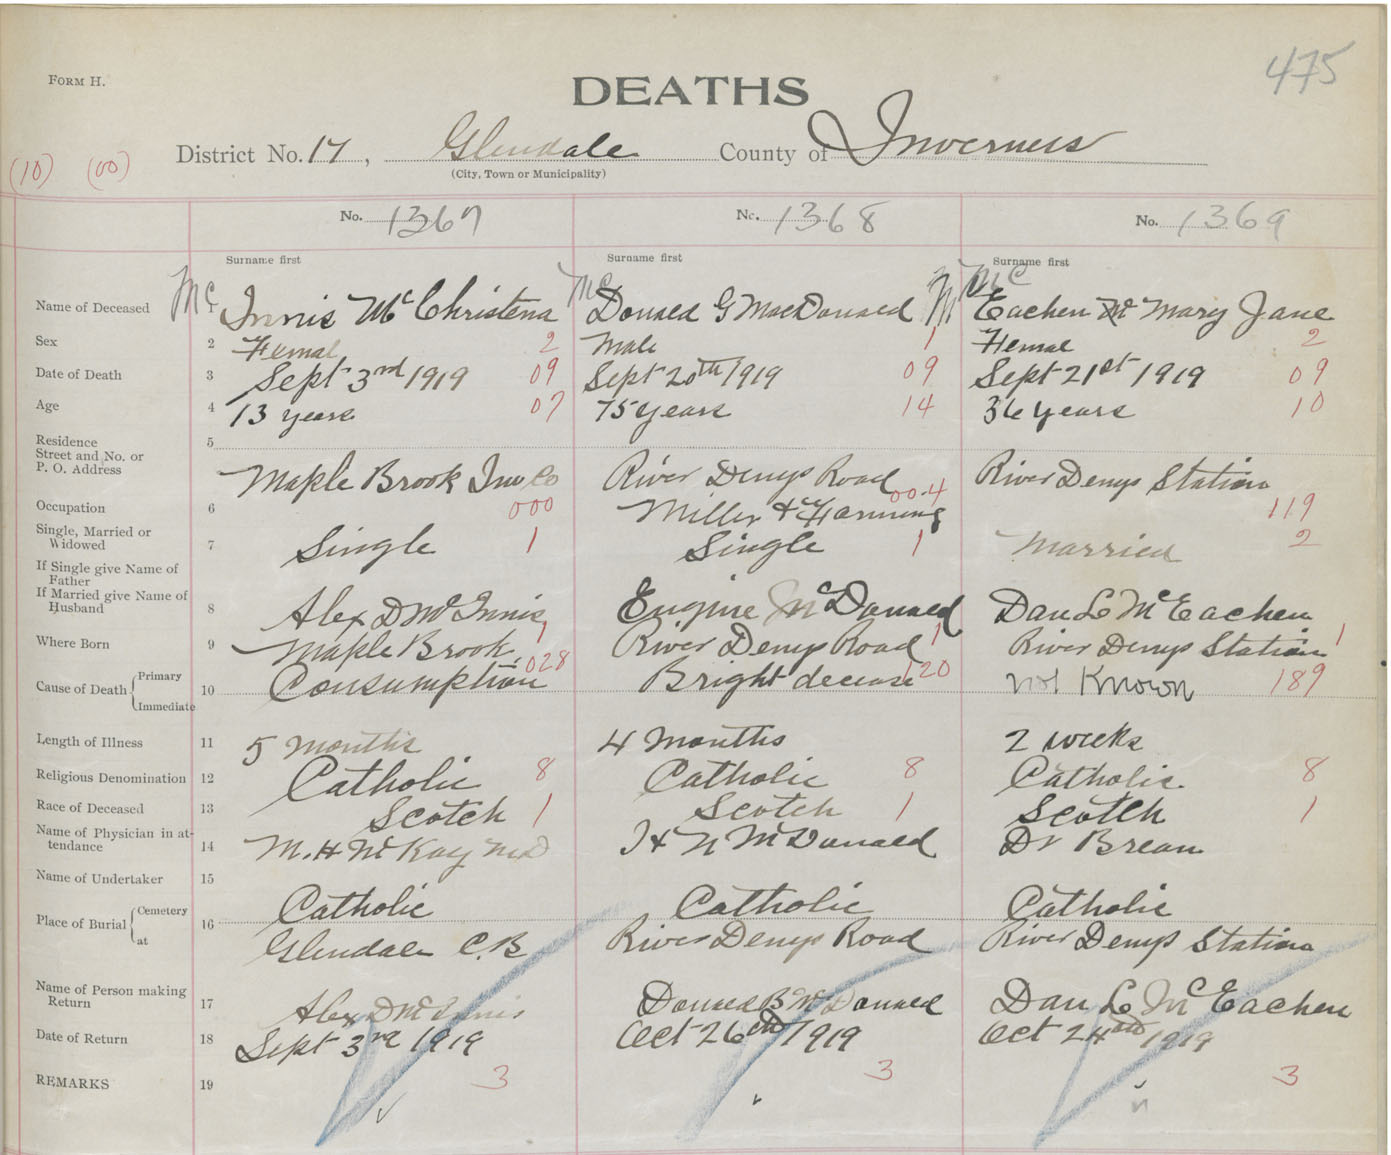 475
FORM H.
DEATHS
District No. 17, Glendale County of Inverness
(City, Town or Municipality)
(10) (00)
No. 1367 No. 1368 No. 1369
Surname first Surname first Surname first
Name of Deceased 1 Mc Innis Mc Christena Mc Donald G MacDonald Mc Eachen Mc Mary Jane
Sex 2 Femal 2 Male 1 Femal 2
Date of Death 3 Sept 3rd 1919 09 Sept 20th 1919 09 Sept 21st 1919 09
Age 4 13 years 07 75 years 14 36 years 10
Residence 5
Street and No. or
P. O. Address Maple Brook Inv Co River Denys Road River Denys Station
Occupation 6 000 Miller & Farming 004 119
Single, Married or
Widowed 7 Single 1 Single 1 Married 2
If Single give Name of
Father
If Married give Name of
Husband 8 Alex D McInnis Eugine McDonald Dan L McEachen
Where Born 9 Maple Brook 1 River Denys Road 1 River Denys Station 1
Cause of Death Primary
Immediate 10 Consumption 028 Bright decease 120 not Known 189
Length of Illness 11 5 months 4 months 2 weeks
Religious Denomination 12 Catholic 8 Catholic 8 Catholic 8
Race of Deceased 13 Scotch 1 Scotch 1 Scotch 1
Name of Physician in at-
tendance 14 M. H McKay MD McDonald Dr Brean
Name of Undertaker 15
Place of Burial Cemetery 16 Catholic Catholic Catholic
at Glendale C.B River Denys Road River Denys Station
Name of Person making
Return 17 Alex D McInnis Donald B McDonald Dan L McEachen
Date of Return 18 Sept 3rd 1919 Oct 26th 1919 Oct 24th 1919
REMARKS 19 3 3 3